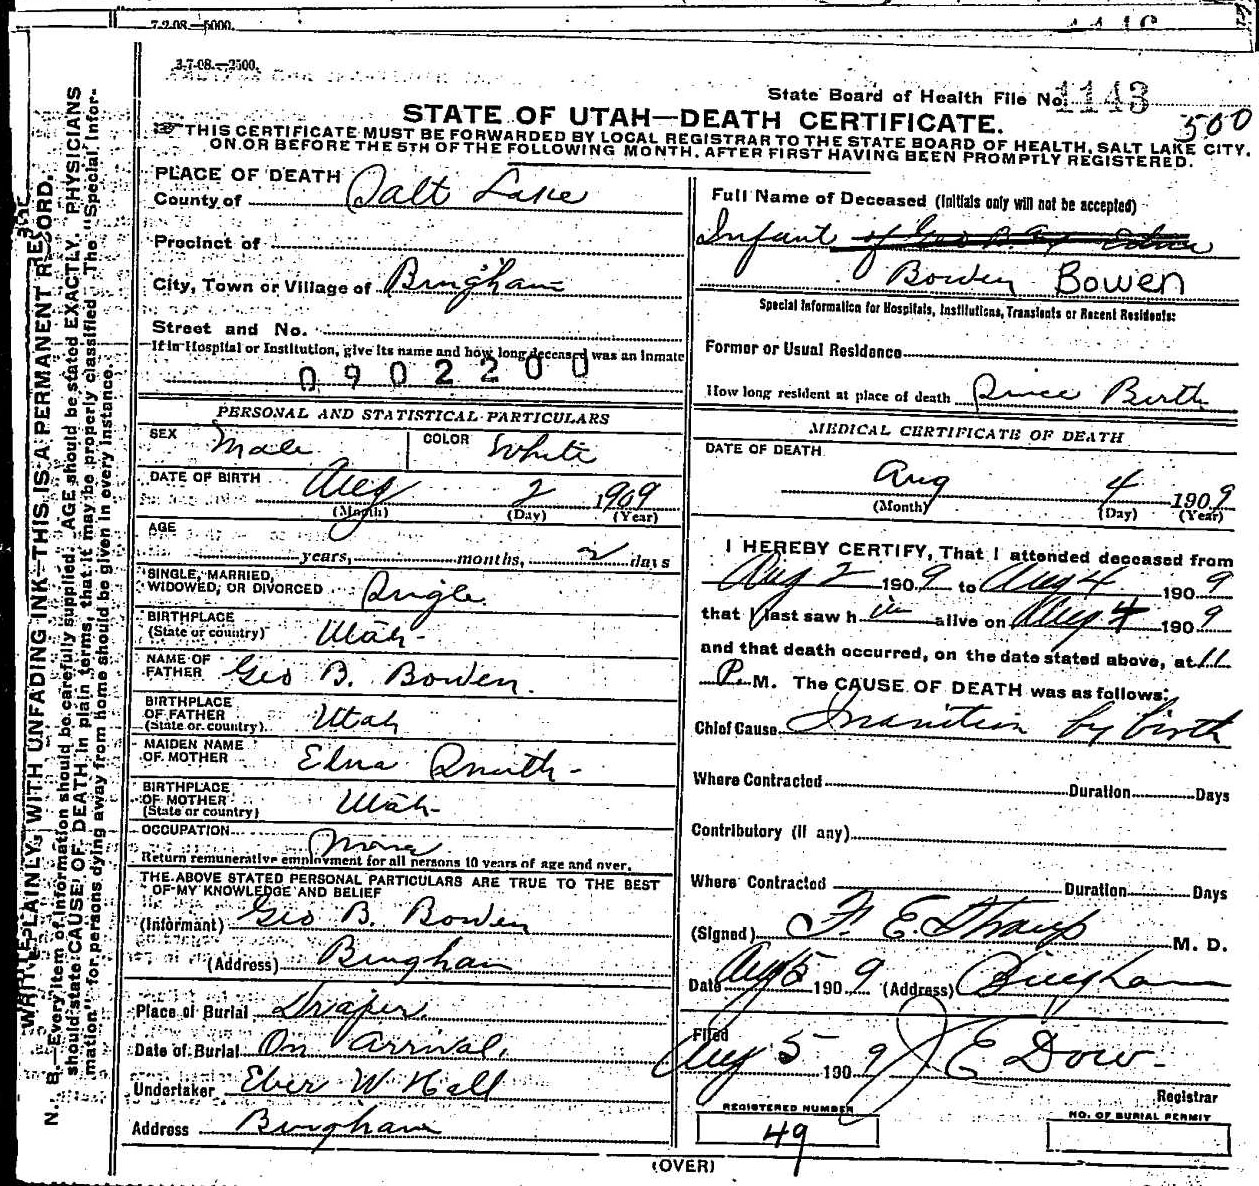 7-2-08.—5000.
3-7-08.—2500.
State Board of Health File No. 1143
500
STATE OF UTAH—DEATH CERTIFICATE.
☞ THIS CERTIFICATE MUST BE FORWARDED BY LOCAL REGISTRAR TO THE STATE BOARD OF HEALTH, SALT LAKE CITY,
ON OR BEFORE THE 5TH OF THE FOLLOWING MONTH, AFTER FIRST HAVING BEEN PROMPTLY REGISTERED.
WRITE PLAINLY, WITH UNFADING INK—THIS IS A PERMANENT RECORD.
N. B.—Every item of information should be carefully supplied. AGE should be stated EXACTLY. PHYSICIANS
should state CAUSE OF DEATH in plain terms, that it may be properly classified. The "Special Infor-
mation" for persons dying away from home should be given in every instance.
PLACE OF DEATH
County of Salt Lake
Precinct of
City, Town or Village of Bingham
Street and No.
If in Hospital or Institution, give its name and how long deceased was an Inmate
0902200
PERSONAL AND STATISTICAL PARTICULARS
SEX Male COLOR White
DATE OF BIRTH Aug 2 1909
(Month) (Day) (Year)
AGE
years, months, 2 days
SINGLE, MARRIED,
WIDOWED, OR DIVORCED Single
BIRTHPLACE
(State or country) Utah
NAME OF
FATHER Geo B. Bowen.
BIRTHPLACE
OF FATHER
(State or country) Utah
MAIDEN NAME
OF MOTHER Edna Smith
BIRTHPLACE
OF MOTHER
(State or country) Utah
OCCUPATION None
Return remunerative employment for all persons 10 years of age and over.
THE ABOVE STATED PERSONAL PARTICULARS ARE TRUE TO THE BEST
OF MY KNOWLEDGE AND BELIEF
(Informant) Geo B. Bowen
(Address) Bingham
Place of Burial Draper.
Date of Burial On Arrival.
Undertaker Eber W Hall
Address Bingham
Full Name of Deceased (Initials only will not be accepted)
Infant of Geo B. Edna
Bowen Bowen
Special Information for Hospitals, Institutions, Transients or Recent Residents:
Former or Usual Residence
How long resident at place of death Since Birth
MEDICAL CERTIFICATE OF DEATH
DATE OF DEATH
Aug 4 1909
(Month) (Day) (Year)
I HEREBY CERTIFY, That I attended deceased from
Aug 2 1909 to Aug 4 1909
that I last saw h im alive on Aug 4 1909
and that death occurred, on the date stated above, at 11
P. M. The CAUSE OF DEATH was as follows:
Chief Cause Inanition by birth
Where Contracted Duration Days
Contributory (if any)
Where Contracted Duration Days
(Signed) F. E. Straup M. D.
Date Aug 5 1909 (Address) Bingham
Filed
Aug 5 1909 J E Dow
Registrar
REGISTERED NUMBER
49
NO. OF BURIAL PERMIT
(OVER)